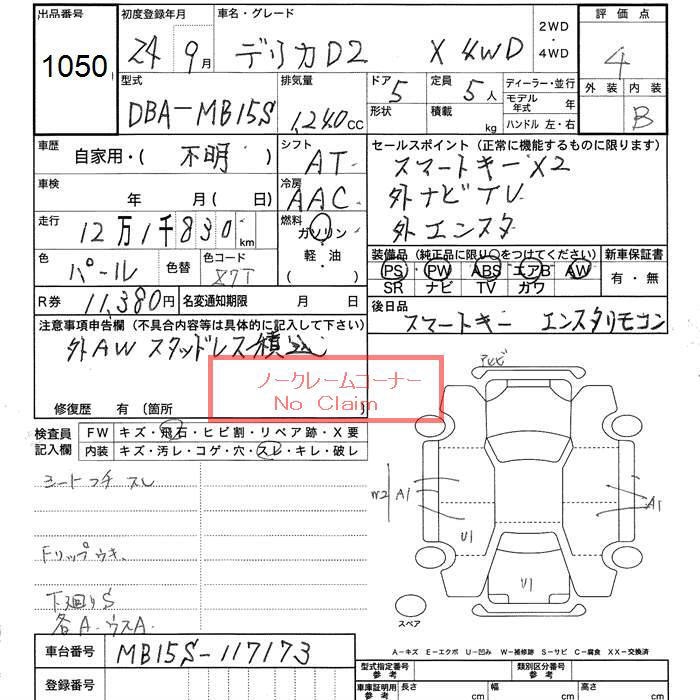 出品番号 初度登録年月 車名・グレード 2WD・4WD 評価点
1050 24 9月 デリカD2 X 4WD 4
外装 内装
B
型式 排気量 ドア 5 定員 5人 ディーラー・並行
DBA-MB15S 1,240cc 形状 積載 kg モデル年式 年
ハンドル 左・右
車歴 自家用・( 不明 ) シフト AT
セールスポイント(正常に機能するものに限ります)
スマートキーX2
外ナビTV
外エンスタ
車検 年 月( 日) 冷房 AAC
走行 12万1千830km 燃料 ガソリン・軽油・( )
色 パール 色替 色コード Z7T
装備品(純正品に限り○をつけてください) 新車保証書
PS PW ABS エアB AW 有・無
SR ナビ TV カワ
R券 11,380円 名変通知期限 月 日
後日品 スマートキー エンスタリモコン
注意事項申告欄(不具合内容等は具体的に記入して下さい)
外AW スタッドレス積込
ノークレームコーナー
No Claim
修復歴 有(箇所 )
検査員記入欄 FW キズ・飛石・ヒビ割・リペア跡・X要
内装 キズ・汚レ・コゲ・穴・スレ・キレ・破レ
シートコゲ スレ
Fリップウキ、
下廻りS
各A・ウスA.
W2 A1 A1
U1
U1
スペア
A-キズ E-エクボ U-凹み W-補修跡 S-サビ C-腐食 XX-交換済
車台番号 MB15S-117173
登録番号
型式指定番号 類別区分番号
車庫証明用参考 長さ cm 幅 cm 高さ cm